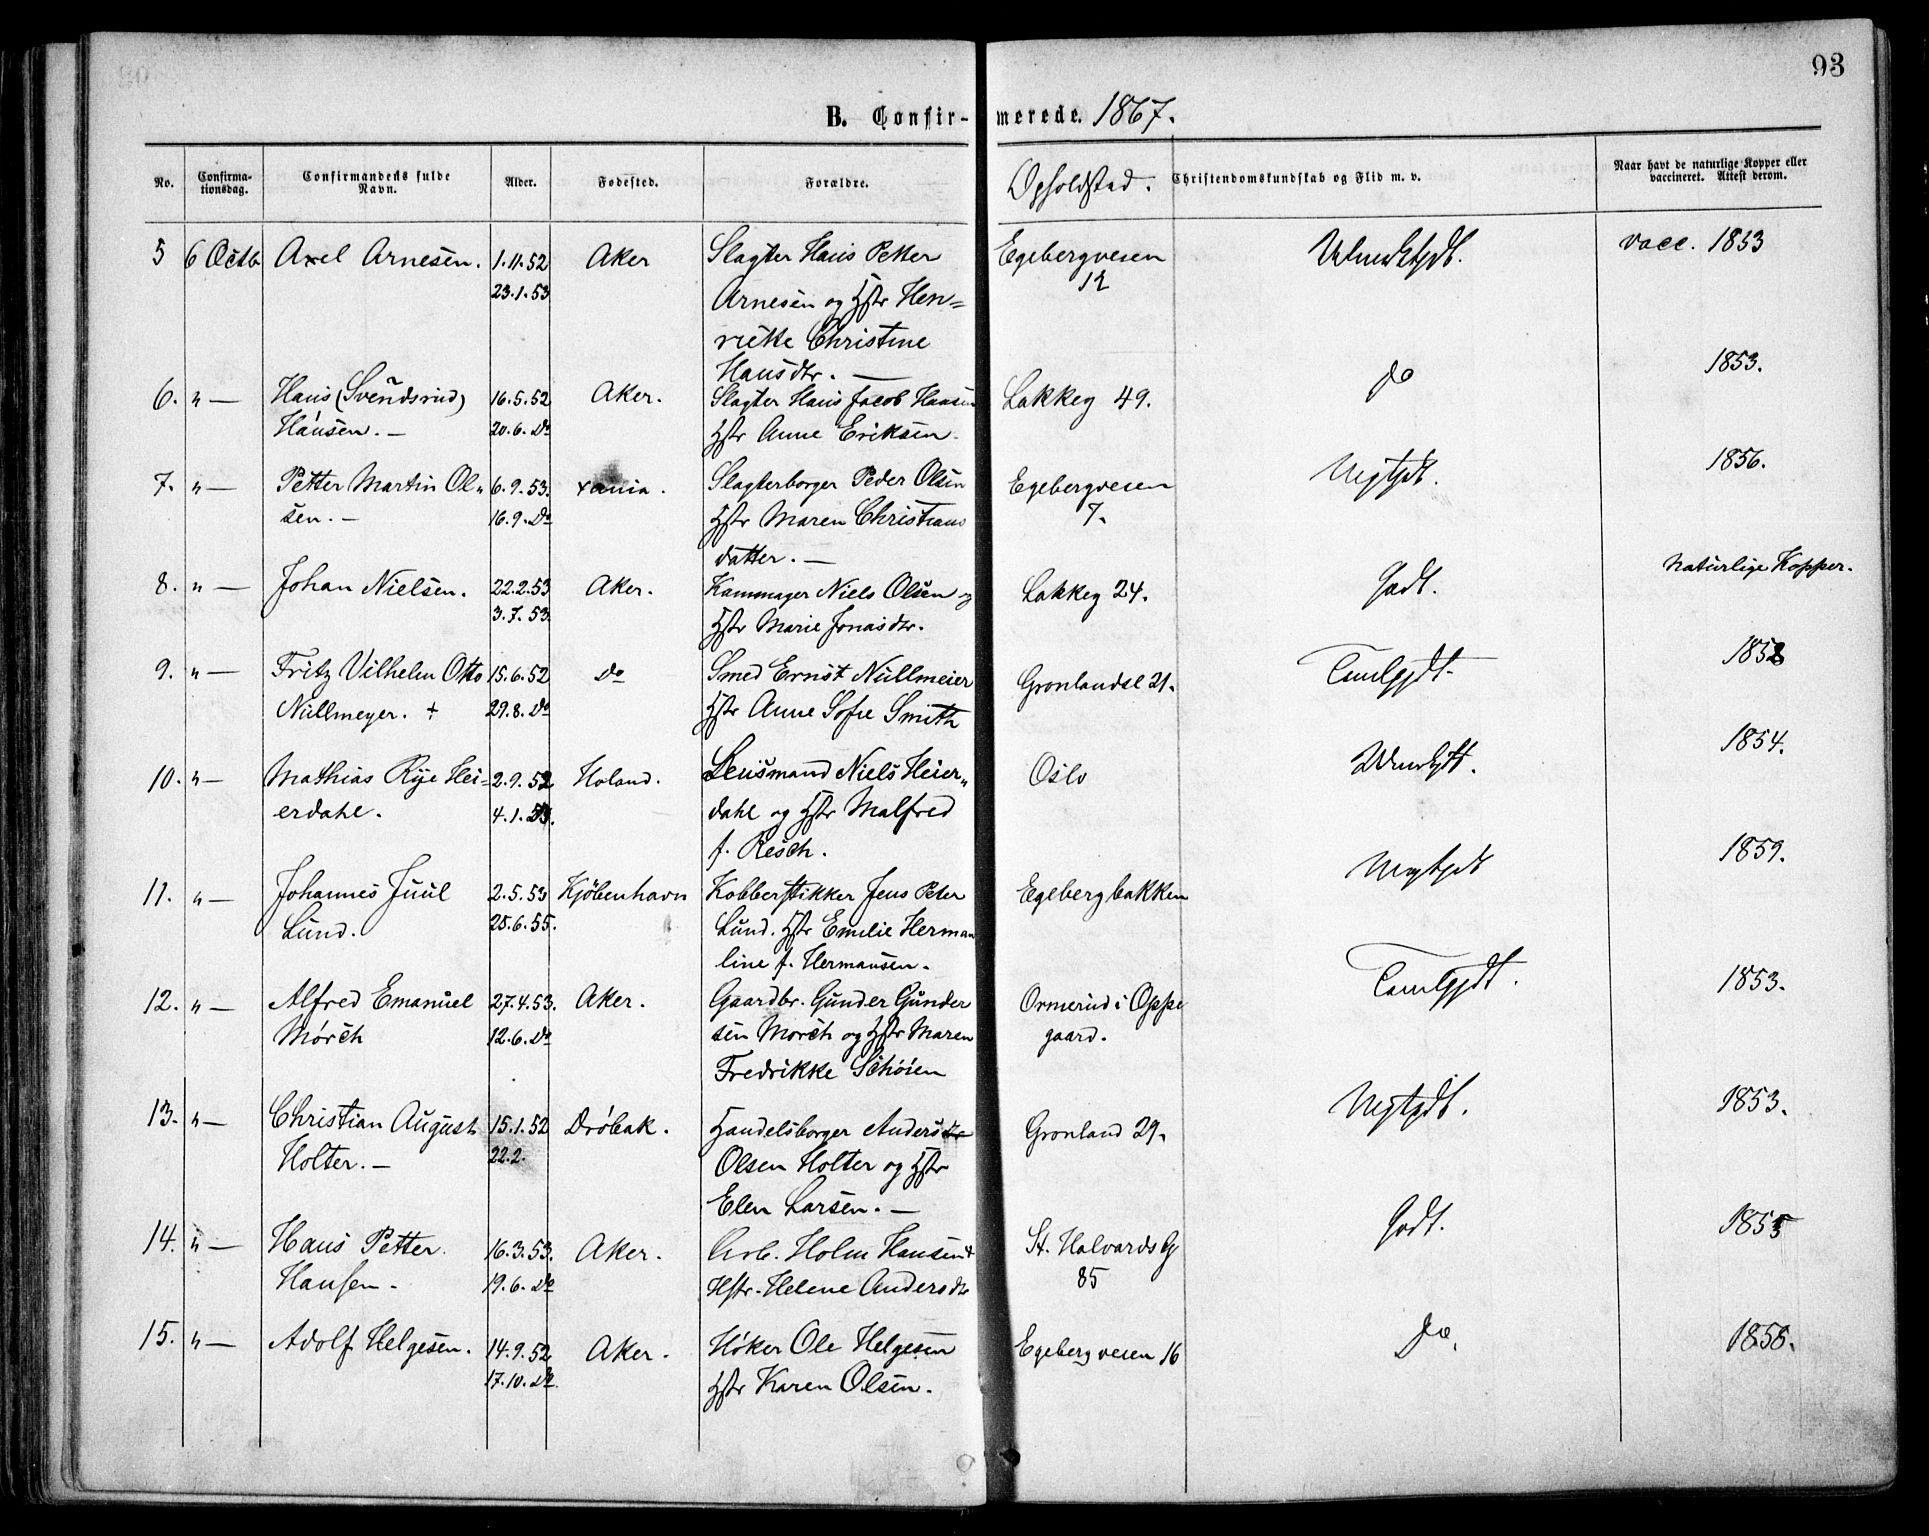 93
B. Confir- merede. 1867.
No. Confirma-tionsdag. Confirmandens fulde Navn. Alder. Fødested. Forældre. Opholdsted. Christendomskundskab og Flid m. v. Naar havt de naturlige Kopper eller vaccineret. Attest derom.
5 6 Octb. Axel Arnesen. 1.11.52 Aker Slagter Hans Petter Egebergveien vacc. 1853
23.1.53 Arnesen og Hstr Hen= 12
riette Christine
Hansdtr. —
6. " — Hans (Svendsrud) 16.5.52 Aker. Slagter Hans Jacob Hansen Lakkeg 49. do 1853.
Hansen. — 20.6. Do Hstr Anne Eriksen.
7. " — Petter Martin Ol= 6.9.53. Xania. Slagterborger Peder Olsen Egebergveien Megtgdt. 1856.
sen. — 16.9. Do Hstr Maren Christians 7.
datter. —
8. " — Johan Nielsen. 22.2.53 Aker. Kammager Niels Olsen og Lakkeg 24. Godt. Naturlige Kopper.
3.7.53. Hstr Marie Jonasdtr.
9. " — Fritz Vilhelm Otto 15.6.52 Do Smed Ernst Nüllmeier Gronlandsl 21. Temlgdt. 1852
Nüllmeyer. + 29.8. Do Hstr Anne Sofie Smith
10. " — Mathias Rye Hei= 2.9.52 Holand. Lensmand Niels Heier= Oslo 1854.
erdahl. 4.1.53. dahl og Hstr Malfred
f. Resch.
11. " — Johannes Juul 2.5.53 Kjöbenhavn Kobberstikker Jens Peter Egebergbakken Megtgdt 1859.
Lund. 28.6.55. Lund. Hstr Emilie Herman
line f. Hermansen.
12. " — Alfred Emanuel 27.4.53. Aker. Gaardbr. Gunder Gunder Ormerud i Oppe Temlgdt. 1853.
Mørch 12.6. Do sen Morch og Hstr Maren gaard.
Fredrikke Schøien
13. " — Christian August 15.1.52 Dröbak. Handelsborger Anders Gronland 29. Megtgdt. 1853.
Holter. — 22.2. Olsen Holter og Hstr
Elen Larsen. —
14. " — Hans Petter 16.3.53. Aker. Arb. Holm Hansen & St. Halvards G Godt. 1855
Hansen. 19.6. Do Hstr. Helene Andersdtr 85
15. " — Adolf Helgesen. 14.9.52 Aker. Høker Ole Helgesen Egebergveien 16 Do.
17.10. Do Hstr Karen Olsen.